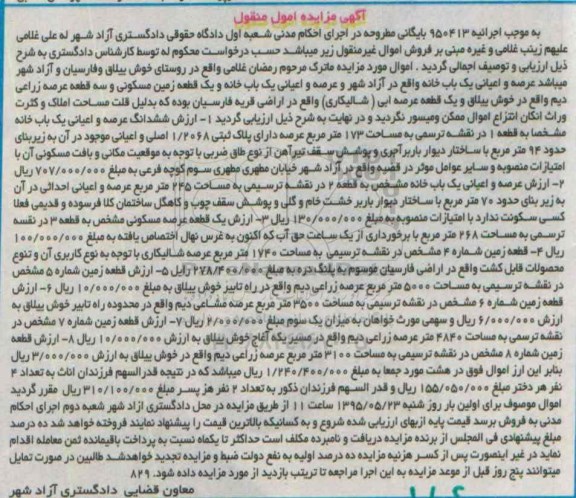 آگهی مزایده اموال منقول
به موجب اجرائیه ۹۵۰۴۱۳ بایگانی مطروحه در اجرای احکام مدنی شعبه اول دادگاه حقوقی دادگستری آزاد شهر له علی غلامی
علیهم زینب غلامی و غیره مبنی بر فروش اموال غیرمنقول زیر میباشد حسب درخواست محکوم له توسط کارشناس دادگستری به شرح
ذیل ارزیابی و توصیف اجمالی گردید . اموال مورد مزایده ماترک مرحوم رمضان غلامی واقع در روستای خوش ییلاق وفارسیان و آزاد شهر
میباشد عرصه و اعیانی یک باب خانه واقع در آزاد شهر و عرصه و اعیانی یک باب خانه و یک قطعه زمین مسکونی و سه قطعه عرصه زراعی
دیم واقع در خوش ییلاق و یک قطعه عرصه آبی ( شالیکاری) واقع در اراضی قریه فارسیان بوده که بدلیل قلت مساحت املاک و کثرت
وراث امکان انتزاع اموال ممکن ومیسور نگردید و در نهایت به شرح ذیل ارزیابی گردید ۱- ارزش ششدانگ عرصه و اعیانی یک باب خانه
مشخصا به قطعه ۱ در نقشه ترسمی به مساحت ۱۷۳ متر مربع عرصه دارای پلاک ثبتی ۱/۲۰۶۸ اصلی و اعیانی موجود در آن به زیربنای
حدود ۹۴ متر مربع با ساختار دیوار باربرآجری و پوشش سقف تیرآهن از نوع طاق ضربی با توجه به موقعیت مکانی و بافت مسکونی آن با
امتیازات منصوبه و سایر عوامل موثر در قضیه واقع در آزاد شهر خیابان مطهری مطهری سوم کوچه فرعی به مبلغ ۷۰۷/۰۰۰/۰۰۰ ریال
۲- ارزش عرصه و اعیانی یک باب خانه مشخص به قطعه ۲ در نقشه ترسیمی به مساحت ۲۴۵ متر مربع عرصه و اعیانی احداثی در آن
به زیر بنای حدود ۷۰ متر مربع با ساختار دیوار باربر خشت خام و گلی و پوشش سقف چوب و کاهگل ساختمان کلا فرسوده و قدیمی فعلا
کسی سکونت ندارد با امتیازات منصوبه به مبلغ ۱۳۰/۰۰۰/۰۰۰ ریال ۳- ارزش یک قطعه عرصه مسکونی مشخص به قطعه ۳ در نقسه
ترسمی به مساحت ۲۶۸ متر مربع با برخورداری از یک ساعت حق آب که اکنون به غرس نهال اختصاص یافته به مبلغ ۱۰۰/۰۰۰/۰۰۰
ریال ۴- قطعه زمین شماره ۴ مشخص در نقشه ترسیمی به مساحت ۱۷۴۰ متر مربع عرصه شالیکاری با توجه به نوع کاربری آن و تنوع
محصولات قابل کشت واقع در اراضی فارسیان موسوم به پلنگ دره به مبلغ ۲۷۸/۴۰۰/۰۰۰ رایل ۵- ارزش قطعه زمین شماره ۵ مشخص
در نقشه ترسیمی به مساحت ۵۰۰۰ متر مربع عرصه زراعی دیم واقع در راه تابیر خوش ییلاق به مبلغ ۱۰/۰۰۰/۰۰۰ ریال ۶- ارزش
قطعه زمین شماره ۶ مشخص در نقشه ترسیمی به مساحت ۳۵۰۰ متر مربع عرصه مشاعی دیم واقع در محدوده راه تابیر خوش ییلاق به
ارزش ۶/۰۰۰/۰۰۰ ریال و سهمی مورث خواهان به میزان یک سوم مبلغ ۲/۰۰۰/۰۰۰ ریال ۷- ارزش قطعه زمین شماره ۷ مشخص در
نقشه ترسمی به مساحت ۴۸۴۰ متر عرصه زراعی دیم واقع در مسیر یکه آغاج خوش ییلاق به ارزش ۱۰/۰۰۰/۰۰۰ ریال ۸- ارزش قطعه
زمین شماره ۸ مشخص در نقشه ترسیمی به مساحت ۳۱۰۰ متر مربع عرصه زراعی دیم واقع در خوش ییلاق به ارزش ۳/۰۰۰/۰۰۰ ریال
بنابر این ارز اموال فوق در هشت مورد جمعا به مبلغ ۱/۲۴۰/۴۰۰/۰۰۰ ریال میباشد که در نتیجه قدرالسهم فرزندان اناث به تعداد ۴
نفر هر دختر مبلغ ۱۵۵/۰۵۰/۰۰۰ ریال و قدر السهم فرزندان ذکور به تعداد ۲ نفر هز پسر مبلغ ۳۱۰/۱۰۰/۰۰۰ ریال مقرر گردید
اموال موصوف برای اولین بار روز شنبه ۱۳۹۵/۰۵/۲۳ ساعت ۱۱ از طریق مزایده در محل دادگستری ازاد شهر شعبه دوم اجرای احکام
مدنی به فروش برسد قیمت پایه ازبهای ارزیابی شده شروع و به کسانیکه بالاترین قیمت را پیشنهاد نمایند فروخته خواهد شد ده درصد
مبلغ پیشنهادی فی المجلس از برنده مزایده دریافت و نامبرده مکلف است حداکثر تا یکماه نسبت به پرداخت باقیمانده ثمن معامله اقدام
نماید در غیر اینصورت پس از کسر هزینه مزایده ده درصد اولیه به نفع دولت ضبط و مزایده تجدید خواهدشد طالبین در صورت تمایل
میتوانند پنج روز قبل از موعد مزایده به این اجرا مراجعه تا ترتیب بازدید از مورد مزایده داده شود. ۸۲۹
معاون قضایی دادگستری آزاد شهر